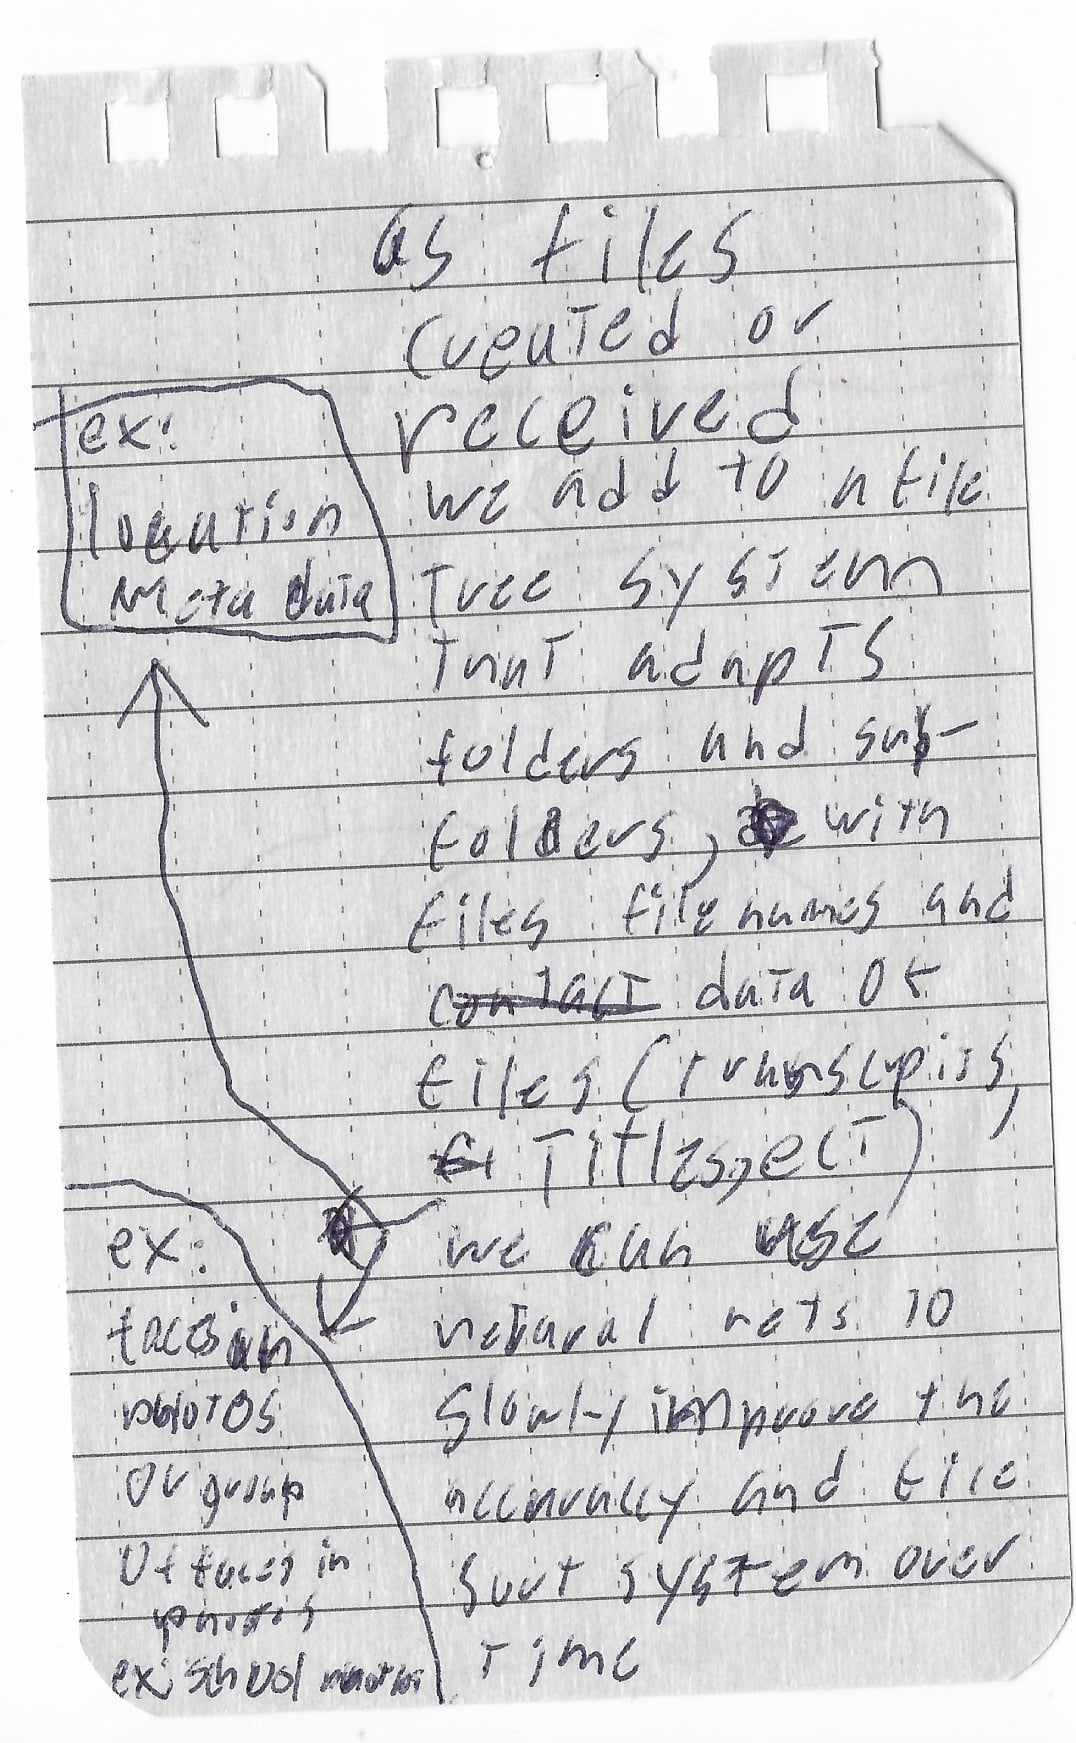 as files
created or
received
we add to a file
tree system
that adapts
folders and sub-
folders, with
files filenames and
contact data of
files (transcpits,
Titles, ect)
we can use
netural nets to
slowly improve the
accuracy and file
sort system over
time
ex:
location
Meta data
ex:
faces in
photos
or group
of faces in
photos
ex: school